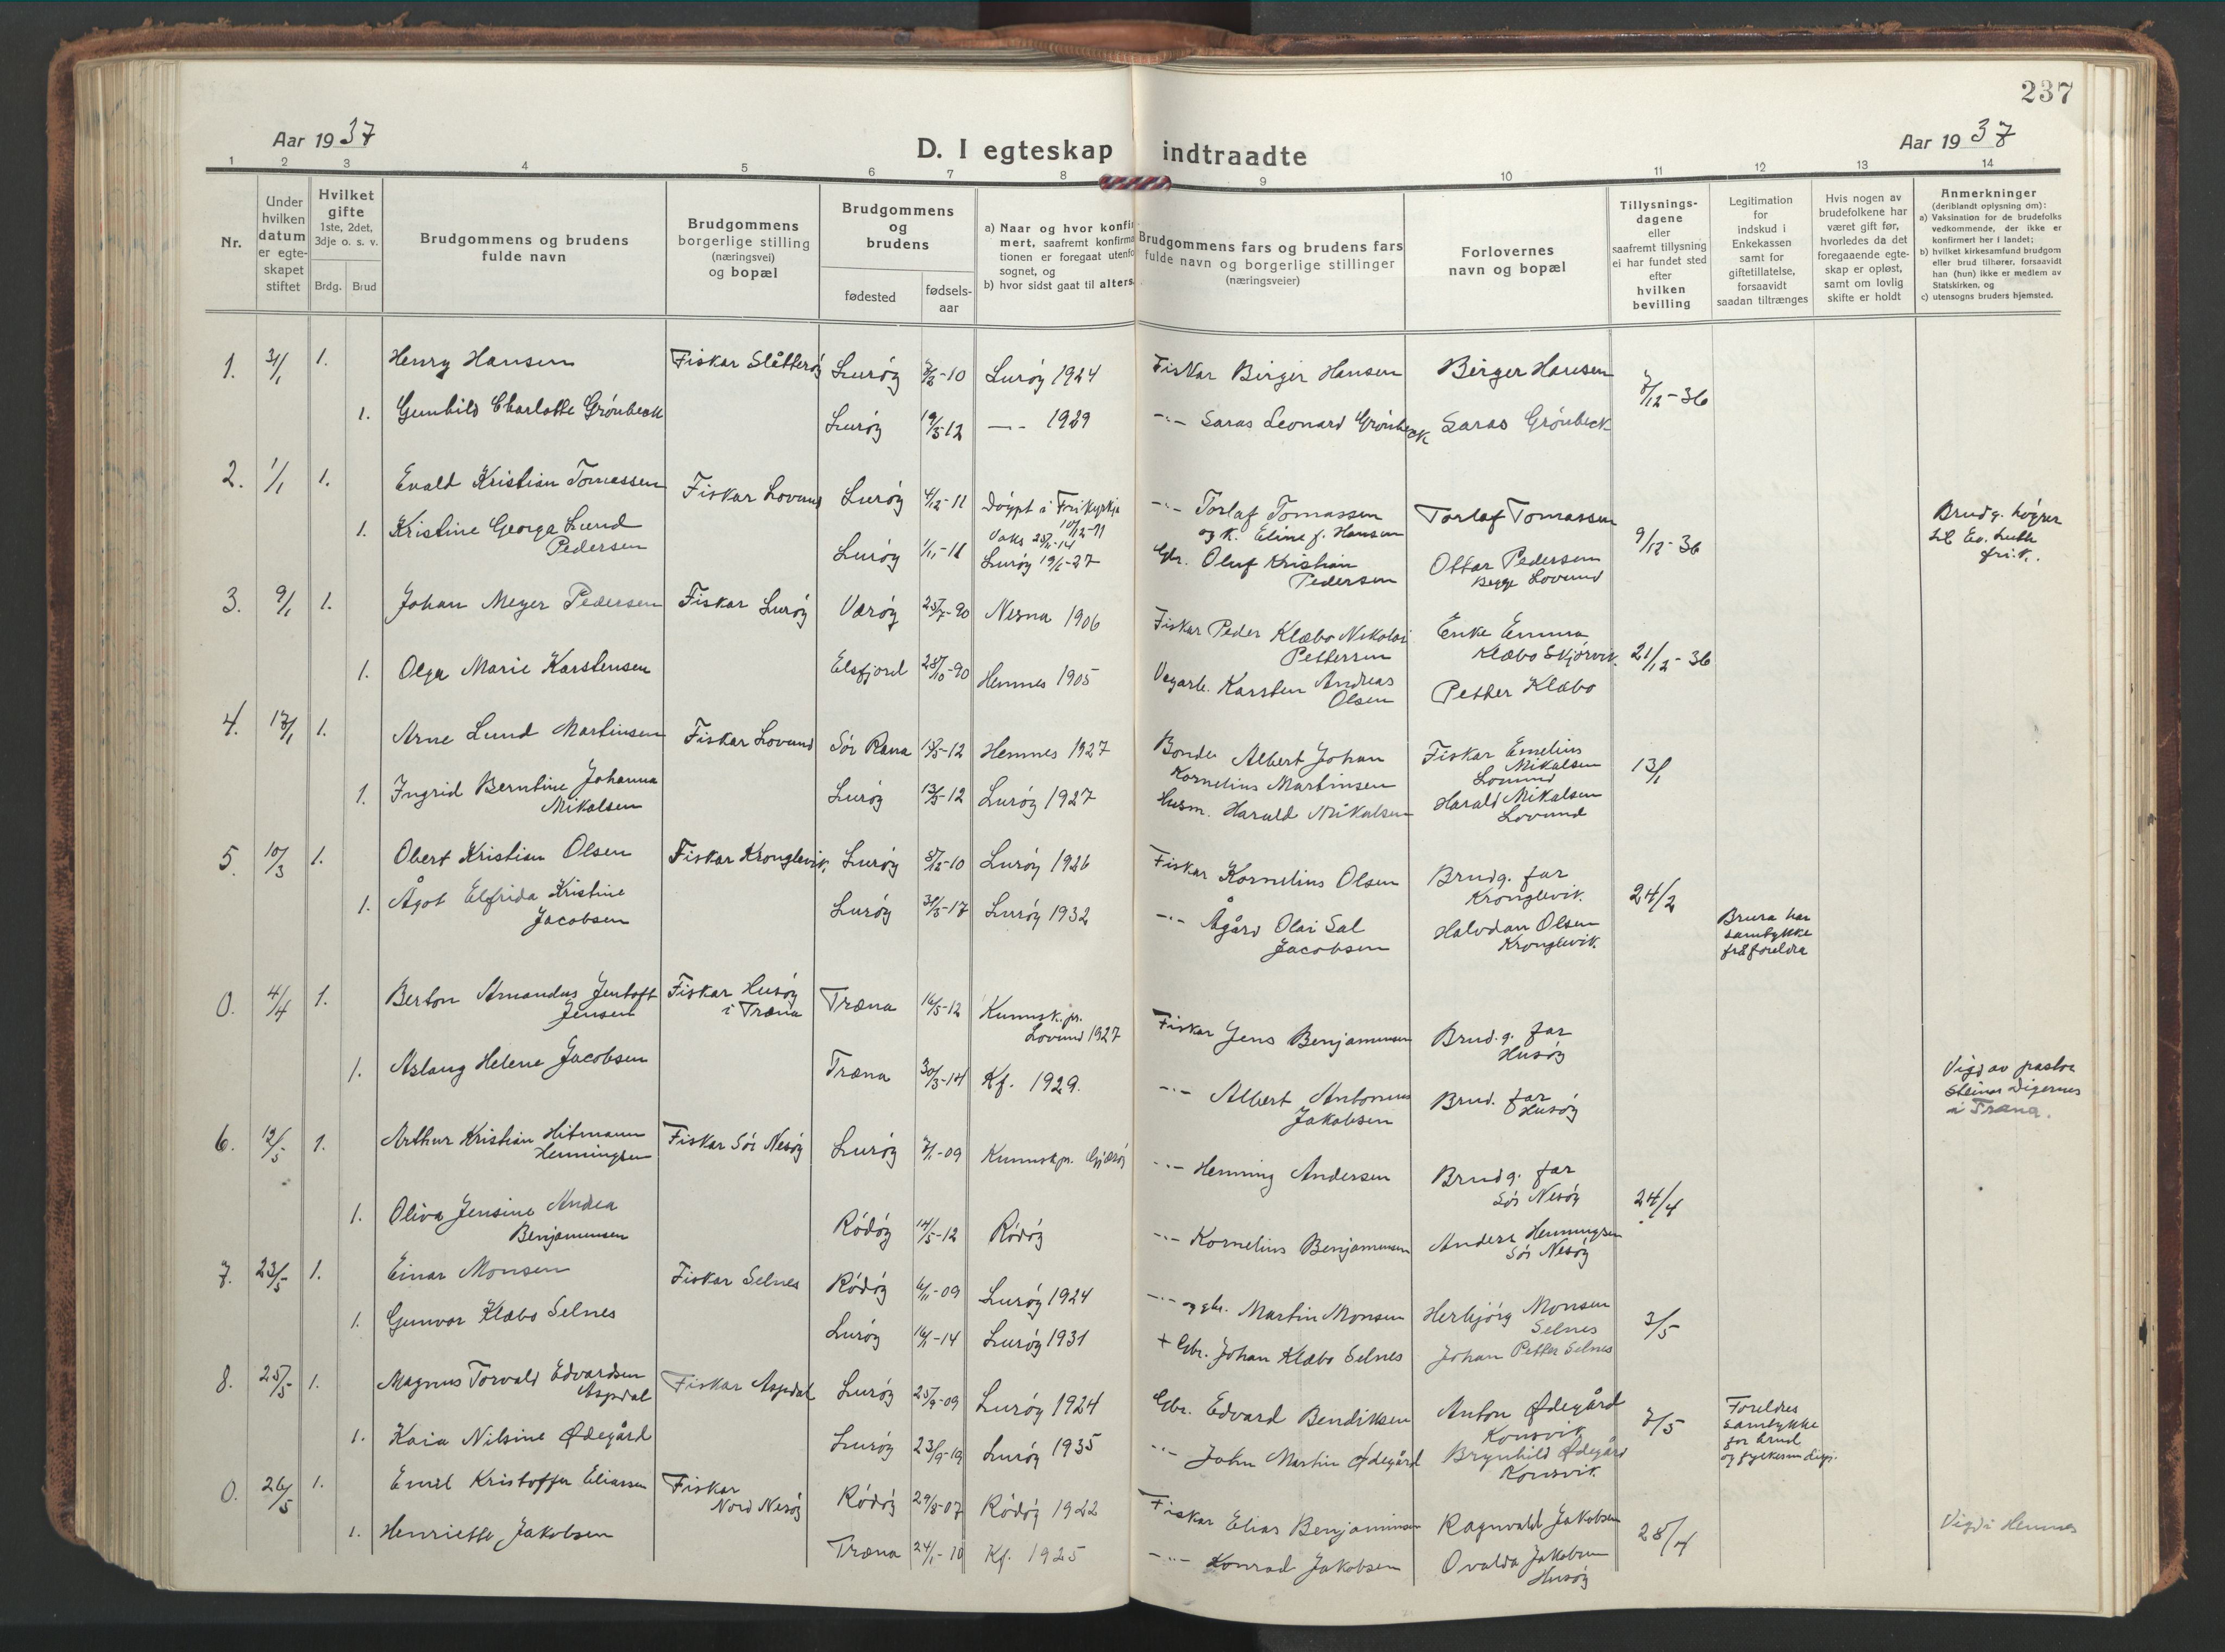 237
Aar 1937
D. I egteskap indtraadte
Aar 1937
1 2 3 4 5 6 7 8 9 10 11 12 13 14
Nr.
Under
hvilken
datum
er egte-
skapet
stiftet
Hvilket
gifte
1ste, 2det,
3dje o. s. v.
Brdg. Brud
Brudgommens og brudens
fulde navn
Brudgommens
borgerlige stilling
(næringsvei)
og bopæl
Brudgommens
og
brudens
fødested
fødsels-
aar
a) Naar og hvor konfir
mert, saafremt konfirma
tionen er foregaat utenfo
sognet, og
b) hvor sidst gaat til alters.
Brudgommens fars og brudens fars
fulde navn og borgerlige stillinger
(næringsveier)
Forlovernes
navn og bopæl
Tillysnings-
dagene
eller
saafremt tillysning
ei har fundet sted
efter
hvilken
bevilling
Legitimation
for
indskud i
Enkekassen
samt for
giftetillatelse,
forsaavidt
saadan tiltrænges
Hvis nogen av
brudefolkene har
været gift før,
hvorledes da det
foregaaende egte-
skap er opløst,
samt om lovlig
skifte er holdt
Anmerkninger
(deriblandt oplysning om):
a) Vaksination for de brudefolks
vedkommende, der ikke er
konfirmert her i landet;
b) hvilket kirkesamfund brudgom
eller brud tilhører, forsaavidt
han (hun) ikke er medlem av
Statskirken, og
c) utensogns bruders hjemsted.
1. 3/1 1. Henry Hansen Fiskar Slåtterøy Lurøy -10 Lurøy 1924 Fiskar Birger Hansen Birger Hansen 7/12-36
1. Gunhild Charlotte Grønbeck Lurøy 19/5 12 -"- 1929 -"- Saras Leonard Grønbeck Saras Grønbeck
2. 1/1 1. Evald Kristian Tomassen Fiskar Lovund Lurøy 4/12-11 Døypt i Frikyrkja -"- Torlaf Tomassen Torlaf Tomassen 9/12-36 Brudg. høyrer
10/12-11
Vaks og k. Eline f. Hansen til Ev. Luth
frik.
1. Kristine Georga Lund
Pedersen Lurøy 1/11-11 Lurøy 19/6-27 Gbr. Oluf Kristian
Pedersen Ottar Pedersen
Begge Lovund
3. 9/1 1. Johan Meyer Pedersen Fiskar Lurøy Værøy 25/7-90 Nesna 1906 Fiskar Peder Klæbo Nikolai
Pettersen Enke Emma
Klæbo Skjørvik. 21/12-36
1. Olga Marie Karstensen Elsfjord 28/10-90 Hemnes 1905 Vegarb. Karsten Andreas
Olsen Petter Klæbo
4. 17/1 1. Arne Lund Martinsen Fiskar Lovund Sør Rana -12 Hemnes 1927 Bonde Albert Johan
Kornelius Martinsen Fiskar Emelius
Mikalsen
Lovund 13/1
1. Ingrid Berntine Johanna
Mikalsen Lurøy 13/5-12 Lurøy 1927 Husm. Harald Mikalsen Harald Mikalsen
Lovund
5. 10/3 1. Obert Kristian Olsen Fiskar Kronglevik, Lurøy -10 Lurøy 1926 Fiskar Kornelius Olsen Brudg. far
Kronglevik. 24/2
1. Ågot Elfrida Kristine
Jacobsen Lurøy 31/5-17 Lurøy 1932 -"- Ågård Olai Sal
Jacobsen Halvdan Olsen
Kronglevik. Brura har
samtykke
frå foreldra
0. 4/4 1. Berton Amandus Jentoft
Jensen Fiskar Husøy
i Træna Træna 16/5-12 Kunnsk.pr.
Lovund 1927 Fiskar Jens Benjaminsen Brudg. far
Husøy
1. Aslaug Helene Jacobsen Træna 30/3-14 Kf. 1929. -"- Albert Antonius
Jakobsen Brud. far
Husøy Vigd av pastor
Steinar Digernes
i Træna.
6. 12/5 1. Arthur Kristian Hitmann
Henningsen Fiskar Sør Nesøy Lurøy 7/1-09 Kunnsk.pr. Gjærøy -"- Henning Andersen Brudg. far
Sør Nesøy 24/4
1. Oliva Jensine Andrea
Benjaminsen Rødøy 14/5-12 Rødøy -"- Kornelius Benjaminsen Anders Henningsen
Sør Nesøy
7. 23/5 1. Einar Monsen Fiskar Selnes Rødøy 6/11-09 Lurøy 1924 -"- og gbr. Martin Monsen Herbjørg Monsen
Selnes 3/5
1. Gunvor Klæbo Selnes Lurøy -14 Lurøy 1931 + Gbr. Johan Klæbo Selnes Johan Petter Selnes
8. 25/5 1. Magnus Torvald Edvardsen
Aspdal Fiskar Aspdal Lurøy 25/9-09 Lurøy 1924 Gbr. Edvard Bendiksen Anton Ødegård
Konsvik 7/5 Foreldres
samtykke
for brud
1. Kaia Nilsine Ødegård Lurøy 23/9-19 Lurøy 1935 -"- John Martin Ødegård Brynhild Ødegård
Konsvik.
0. 26/5 1. Emil Kristoffer Eliassen Fiskar
Nord Nesøy Rødøy 29/8-07 Rødøy 1922 Fiskar Elias Benjaminsen Ragnvald Jakobsen 28/4 Vigd i Hemnes
1. Henriette Jakobsen Træna 24/1-10 Kf. 1925 -"- Konrad Jakobsen Ovalda Jakobsen
Husøy